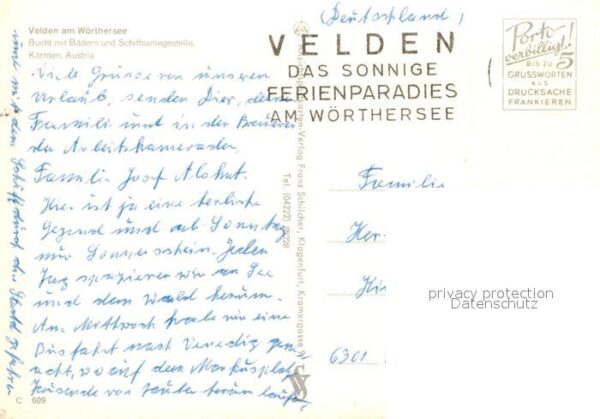 Velden am Wörthersee
Bucht mit Bädern und Schiffsanlegestelle,
Kärnten, Austria
(Deutschland)
VELDEN
DAS SONNIGE
FERIENPARADIES
AM WÖRTHERSEE
Porto
verbilligt!
5
BIS ZU
GRUSSWORTEN
ALS
DRUCKSACHE
FRANKIEREN
Viele Grüsse von unseren
Urlaub, senden Dier, deine
Familie und in der Brauerei
die Arbeitskameraden,
Familie Josef
Hier ist ja eine herliche
Gegend und ab Sonntag
nur Sonnenschein. Jeden
Tag spazieren wir am See
und dem Wald herum.
Am Mittwoch habe wir eine
Busfahrt nach Venedig gemacht,
wo auf dem Markusplatz
Tausende von Tauben herum laufen,
und mit dem Schiff durch die Stadt gefahren
Ansichtskarten-Verlag Franz Schilcher, Klagenfurt, Kramergasse 9
Tel. (04222) 85228
Familie
Her
6301
privacy protection
Datenschutz
C 609